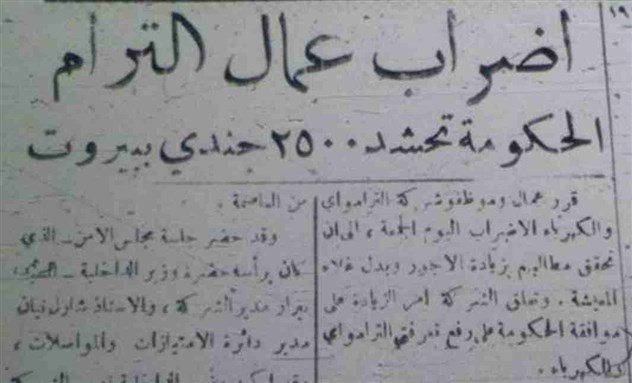 ١٩
اضراب عمال الترام
الحكومة تحشد ٢٥٠٠ جندي ببيروت
قرر عمال وموظفو شركة الترامواي
والكهرباء الاضراب اليوم الجمعة ، الى ان
تحقق مطالبهم بزيادة الاجور وبدل غلاء
المعيشة . وتعلق الشركة امر الزيادة على
موافقة الحكومة على رفع تعرفتي الترامواي
والكهرباء .
من العاصمة .
وقد حضر جلسة مجلس الامن ـ الذي
كان يرأسه حضرة وزير الداخلية ـ المسيو
مدير الشركة ، والاستاذ شارل
مدير دائرة الامتيازات والمواصلات ،